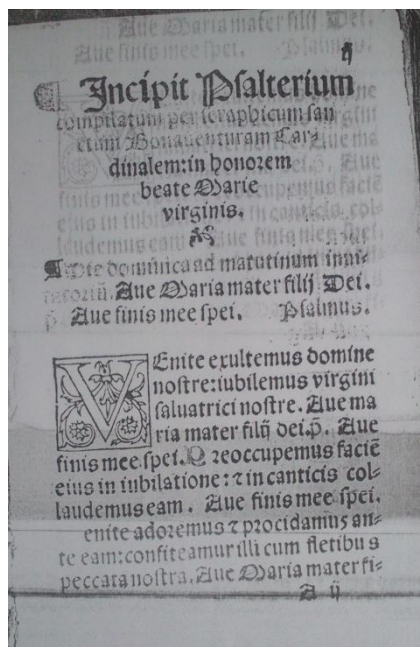 Incipit Psalterium
compilatum per seraphicum san
ctum Bonauenturam Car⸗
dinalem: in honorem
beate Marie
virginis.
dominica ad matutinum inui⸗
Aue Maria mater filij Dei.
Aue finis mee spei. Psalmus.
VEnite exultemus domine
nostre: iubilemus virgini
saluatrici nostre. Aue ma
ria mater filij dei. p̄. Aue
finis mee spei. Preoccupemus faciē
eius in iubilatione: ⁊ in canticis col⸗
laudemus eam. Aue finis mee spei.
enite adoremus ⁊ procidamus an⸗
te eam: confiteamur illi cum fletibus
peccata nostra. Aue Maria mater fi⸗
A ij